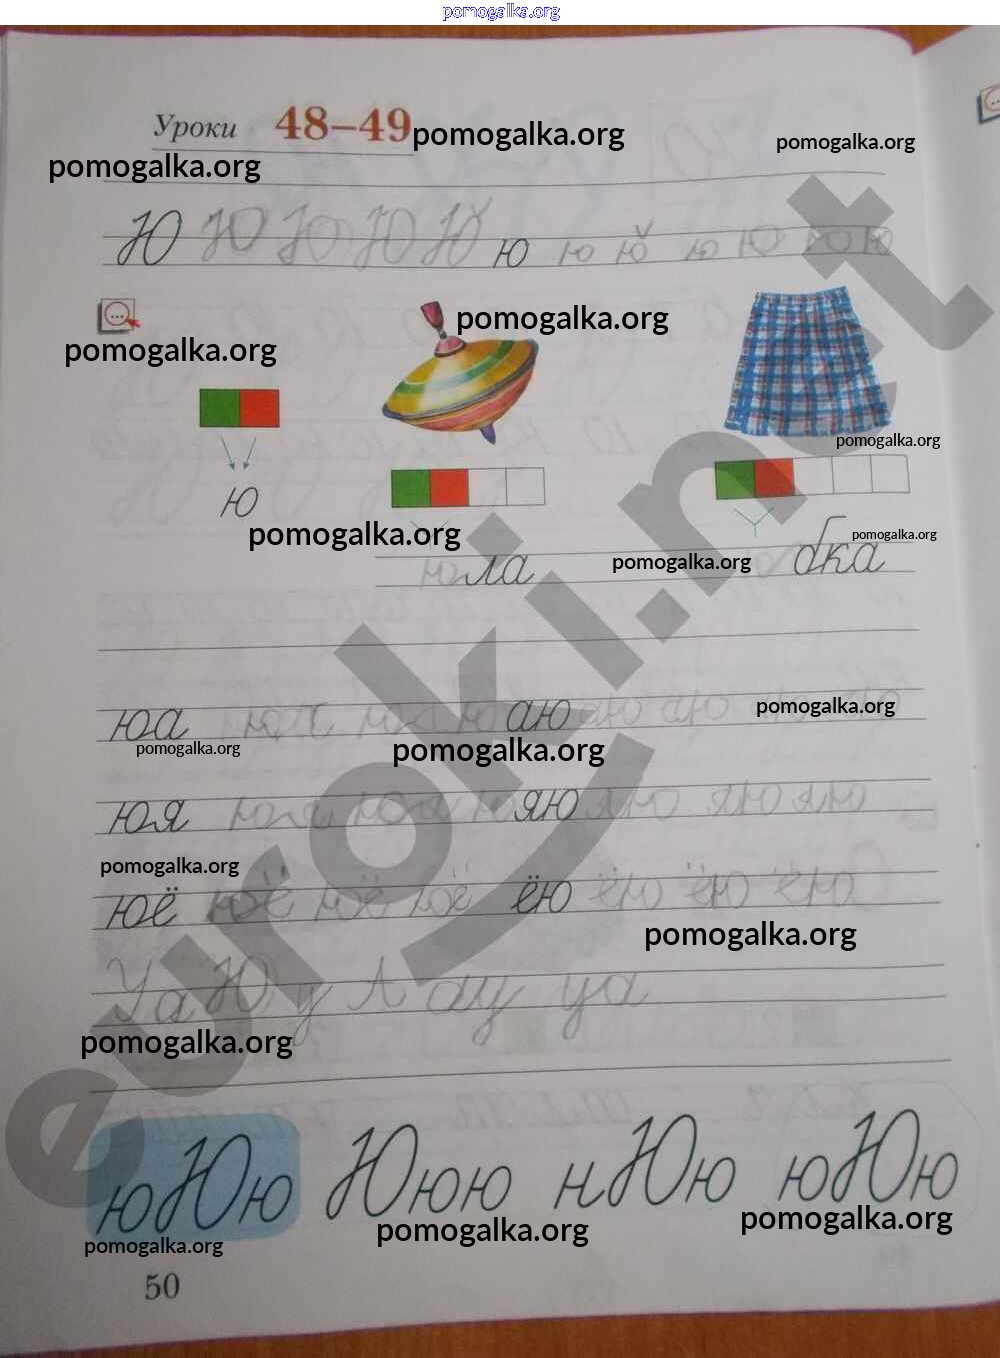 pomogalka.org
Уроки 48–49 pomogalka.org pomogalka.org
pomogalka.org
Ю Ю Ю Ю Ю ю ю ю ю ю ю ю
pomogalka.org
pomogalka.org
pomogalka.org
ю
pomogalka.org
pomogalka.org
pomogalka.org
юла бка
юа аю аю аю
pomogalka.org
pomogalka.org
pomogalka.org
юя юя юя яю яю яю яю
pomogalka.org
юё юё юё юё ёю ёю ёю ёю
pomogalka.org
Уа Ю у А ау уа
pomogalka.org
юЮю Ююю нЮю юЮю
pomogalka.org
pomogalka.org
pomogalka.org
50
euroki.net